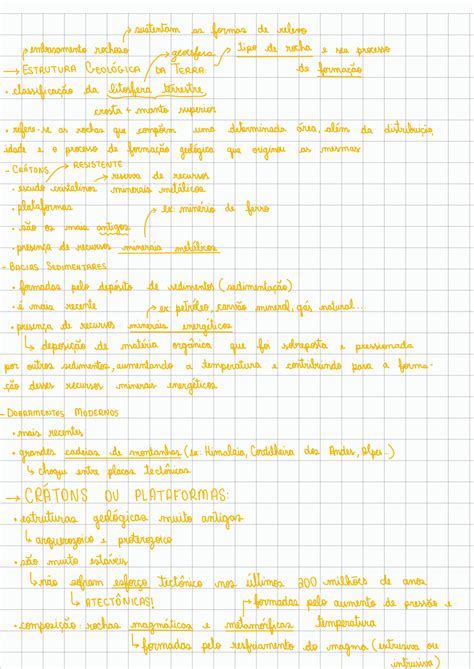 sustentam as formas de relevo
embasamento rochoso
geosfera
tipo de rocha e seu processo
→ ESTRUTURA GEOLÓGICA DA TERRA: de formação
• classificação da litosfera terrestre
crosta + manto superior
• refere-se as rochas que compõem uma determinada área, além da distribuição,
idade e o processo de formação geológica que originou as mesmas
- CRÁTONS RESISTENTE
reserva de recursos
• escudo cristalinos minerais metálicos
• plataformas
ex: minério de ferro
• são os mais antigos
• presença de recursos minerais metálicos
- BACIAS SEDIMENTARES
• formadas pelo depósito de sedimentos (sedimentação)
• é mais recente ex: petróleo, carvão mineral, gás natural...
• presença de recursos minerais energéticos
↳ deposição de matéria orgânica que foi sobreposta e pressionada
por outros sedimentos, aumentando a temperatura e contribuindo para a forma-
ção desses recursos minerais energéticos
- DOBRAMENTOS MODERNOS
• mais recentes
• grandes cadeias de montanhas (ex: Himalaia, Cordilheira dos Andes, Alpes...)
↳ choque entre placas tectônicas
→ CRÁTONS OU PLATAFORMAS:
• estruturas geológicas muito antigas
↳ arqueozoico e proterozoico
• são muito estáveis
↳ não sofram esforço tectônico nos últimos 300 milhões de anos
↳ ATECTÔNICAS!
formadas pelo aumento de pressão e
• composição: rochas magmáticas e metamórficas temperatura
↳ formadas pelo resfriamento do magma (extrusiva ou
intrusiva)